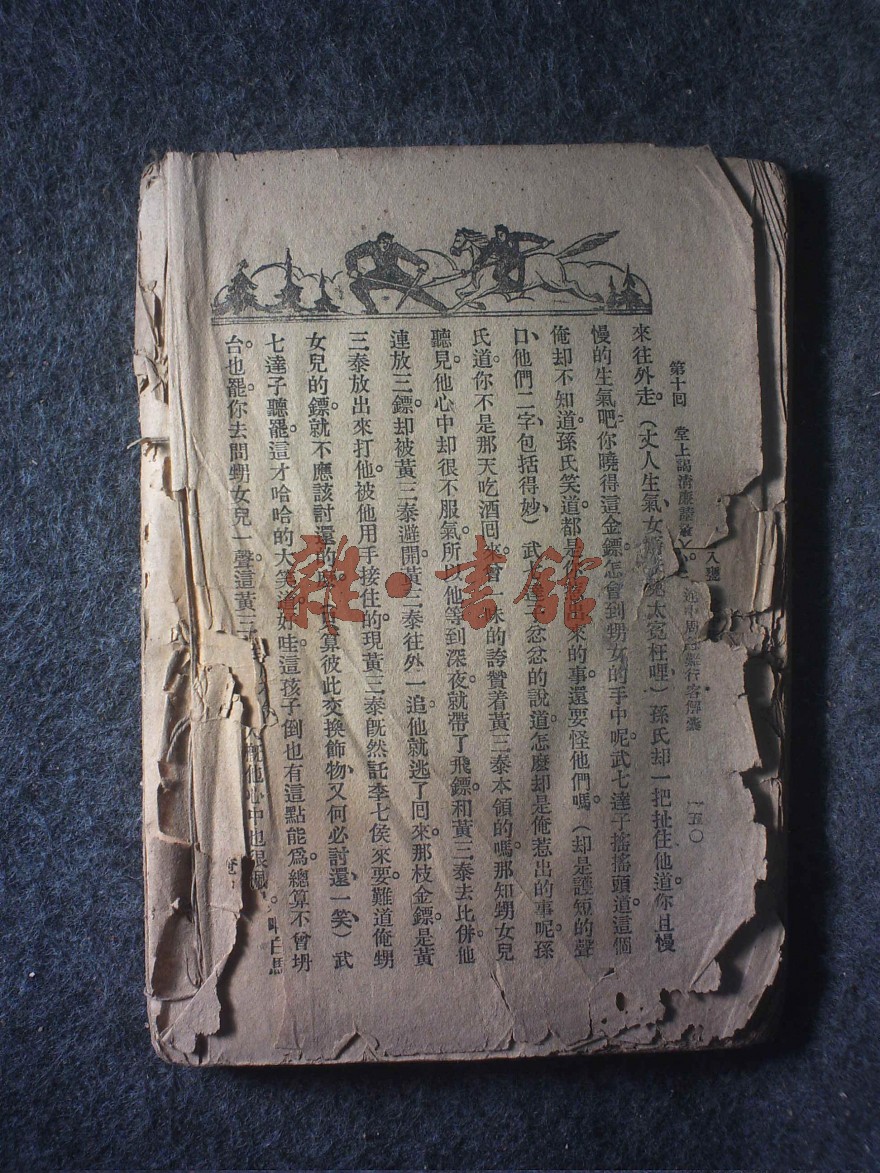 第十回 堂上謁清廉 入甕 途中 行客解囊 一五〇
來往外走。(丈人生氣女婿 太冤枉哩)孫氏却一把扯住他道你且慢
慢的生氣吧你曉得這金鏢怎會到甥女的手中呢武七達子搖搖頭道這個
俺却不知道孫氏笑道都是你 出來的事還要怪他們嗎。(却是護短的聲
口、他們二字包括得妙)武七達子忿忿的說道怎麼却是俺惹出的事呢孫
氏道你不是那天吃酒回來曾一味的誇贊着黃三泰本領的嗎那知甥女兒
聽見他心中却很不服氣所以他等到深夜就帶了飛鏢和黃三泰去比併他
連放三鏢却被黃三泰避開黃三泰往外一追他就逃了回來那枝金鏢是黃
三泰放出來打他被他用手接住的現黃三泰既然託李七侯來要難道俺甥
女兒的鏢就不應該討還的麼。(只算彼此交換飾物又何必討還一笑)武
七達子聽罷這才哈哈的大笑道好哇這孩子倒也有這點能爲總算不曾坍
台也罷你去問甥女兒一聲這黃三
他心中也很 叫白馬
雜·書館